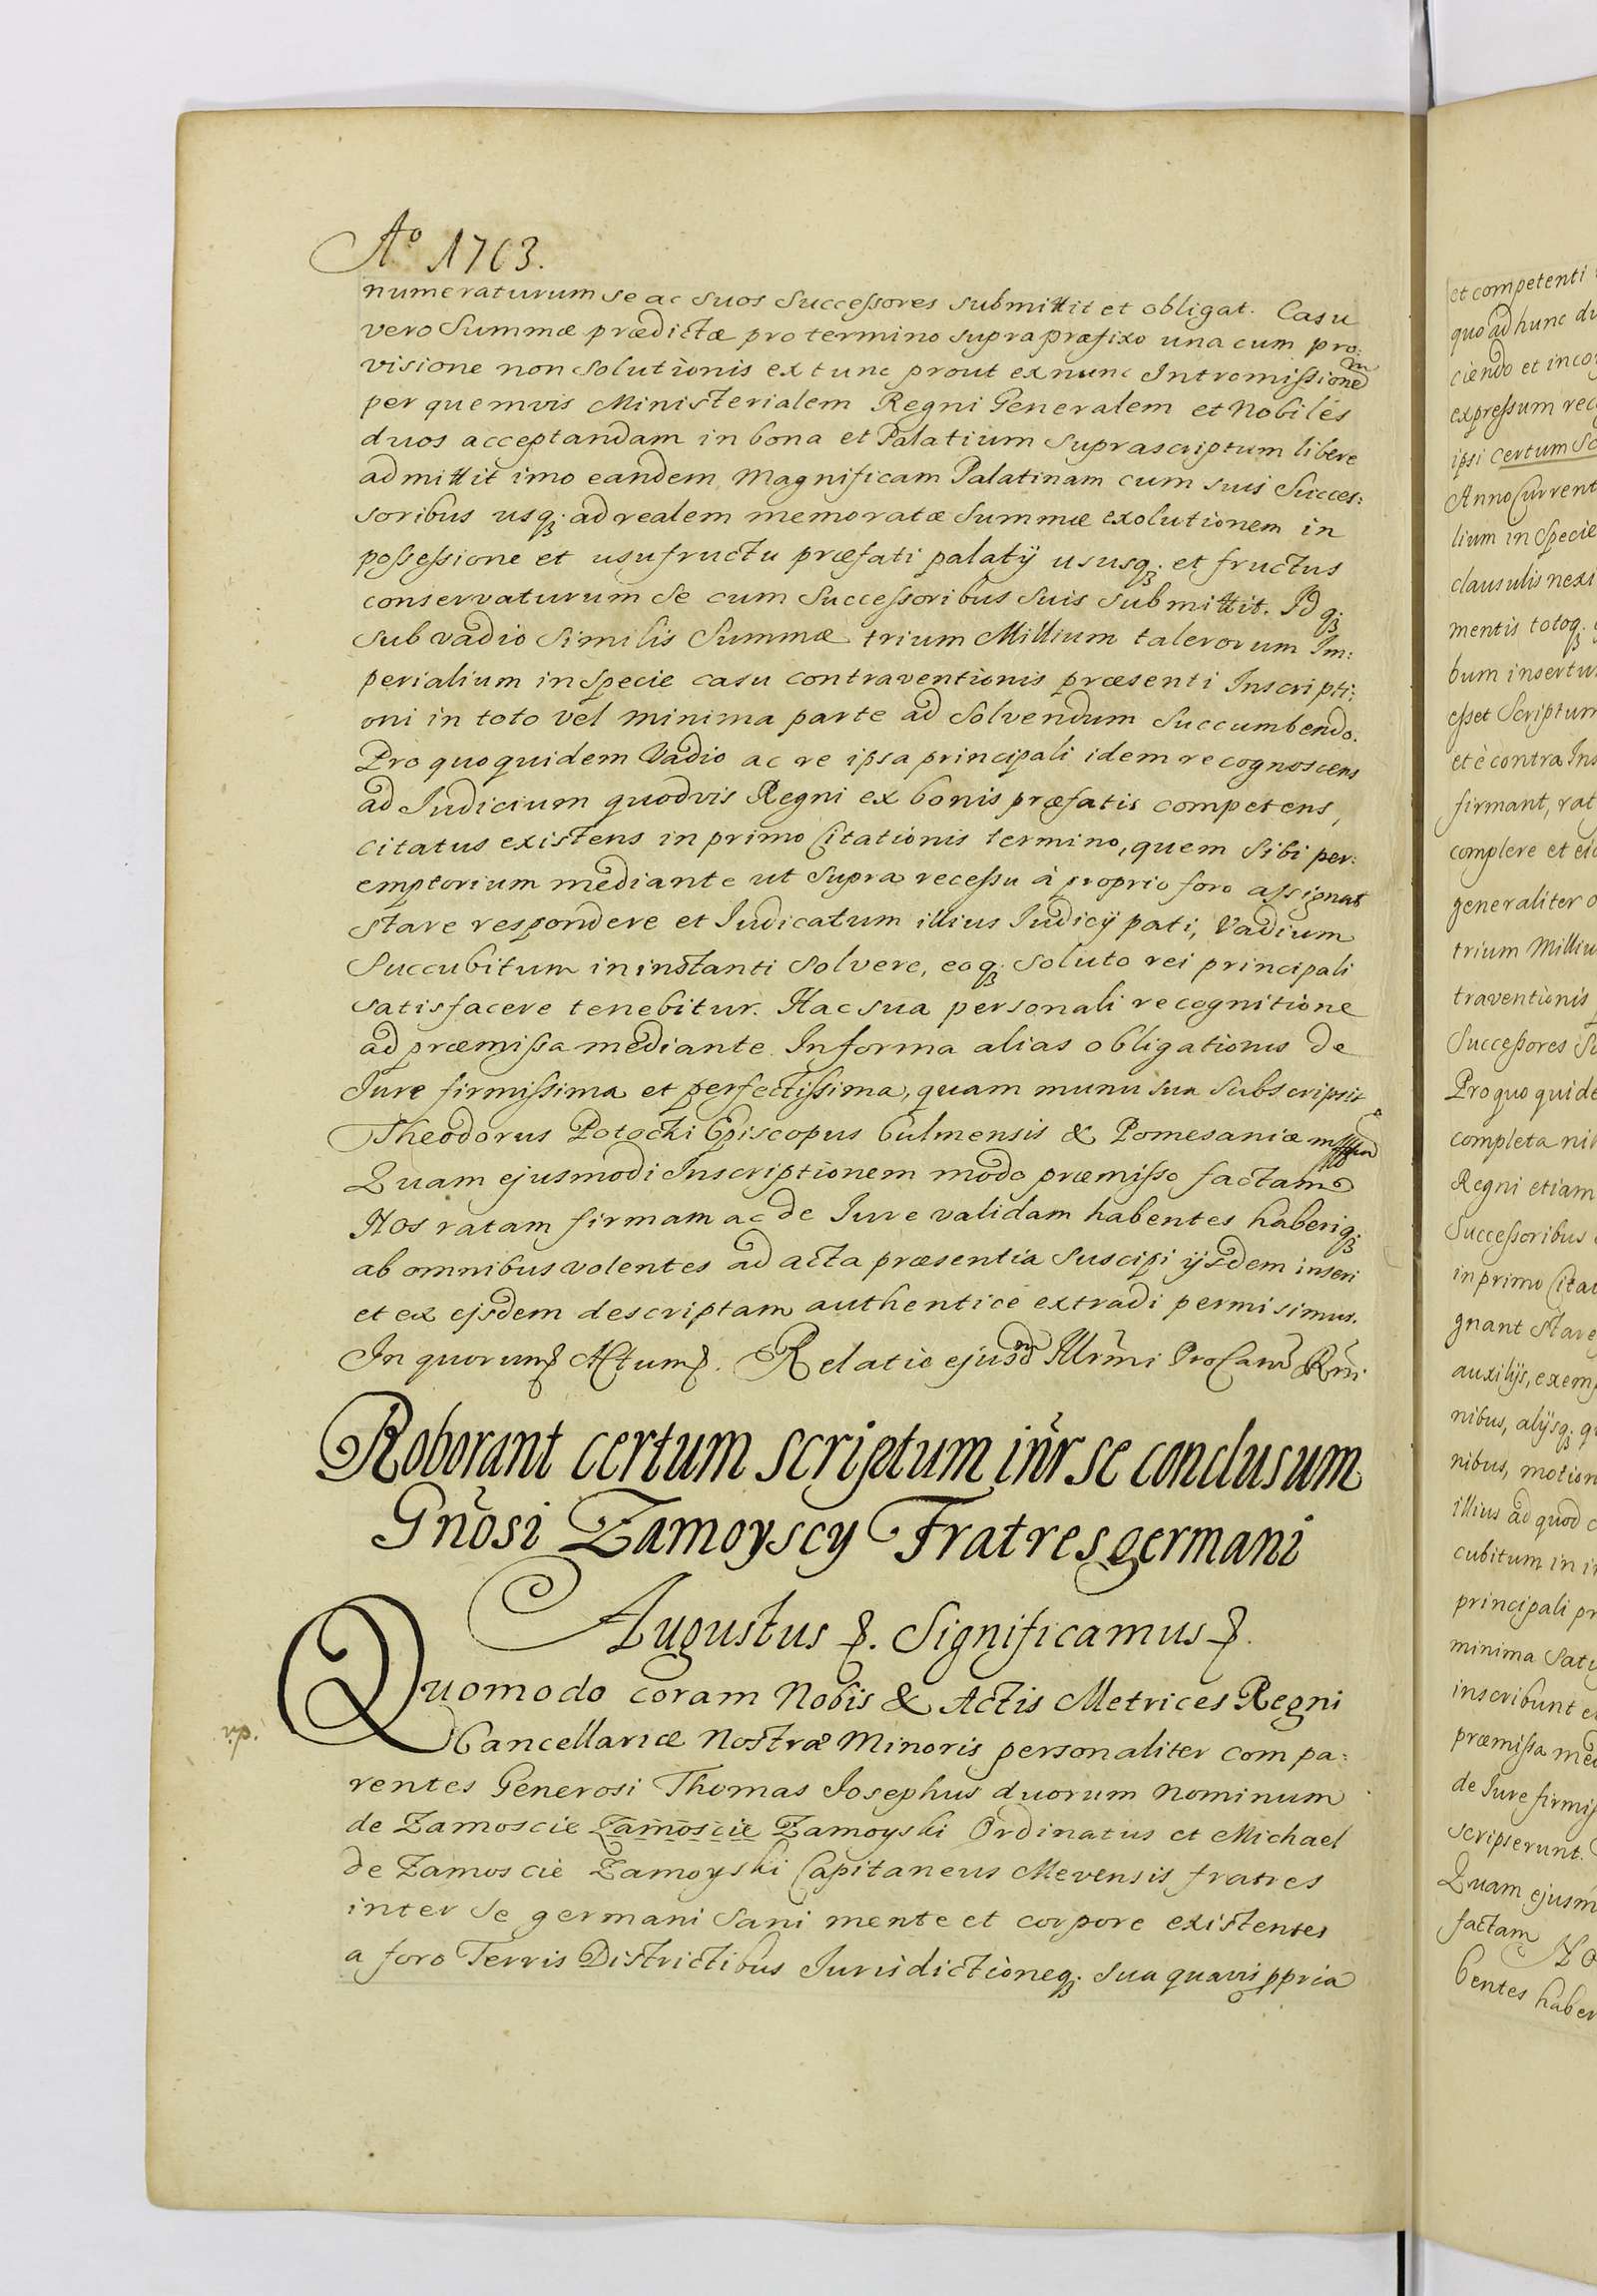 Aº 1703.
numeraturum se ac suos Successores submittit et obligat. Casu
vero Summæ prædictæ pro termino supra præfixo una cum pro:
visione non solutionis extunc prout exnunc Intromissionem
per quemvis Ministerialem Regni Generalem et Nobiles
duos acceptandam in bona et Palatium suprascriptum libere
admittit imo eandem Magnificam Palatinam cum suis Succes:
soribus usq; ad realem memoratæ Summæ exolutionem in
possessione et usufructu præfati palatij ususq; et fructus
conservaturum se cum Successoribus suis submittit. Idq;
sub vadio similis Summæ trium Millium talerorum Im:
perialium in Specie casu contraventionis præsenti Inscripti:
oni in toto vel minima parte ad solvendum succumbendo.
Pro quo quidem Vadio ac re ipsa principali idem recognoscens
ad Iudicium quodvis Regni ex bonis præfatis competens,
citatus existens in primo Citationis termino, quem sibi per:
emptorium mediante ut supra recessu à proprio foro assignat
stare respondere et Iudicatum illius Iudicij pati, Vadium
succubitum in instanti solvere, eoq; soluto rei principali
satisfacere tenebitur. Hac sua personali recognitione
ad præmissa mediante. In forma alias obligationis de
Iure firmissima et perfectissima, quam manu sua subscripsit
Theodorus Potocki Episcopus Culmensis & Pomesaniæ
Quam ejusmodi Inscriptionem modo præmisso factam
Nos ratam firmam ac de Iure validam habentes haberiq;
ab omnibus volentes ad acta præsentia suscipi ijsdem inseri
et ex ejsdem descriptam authentice extradi permisimus.
In quorum Actum. Relatio ejusdm Illrmi ProCanc Rni
Roborant certum scriptum inr̃ se conclusum
Gnõsi Zamoyscy Fratres germani
Augustus &. Significamus &.
Quomodo coram Nobis & Actis Metrices Regni
Cancellariæ Nostræ Minoris personaliter compa:
rentes Generosi Thomas Iosephus duorum nominum
de Zamoscie Zamoscie Zamoyski Ordinatus et Michael
de Zamoscie Zamoyski Capitaneus Mevensis fratres
inter se germani sani mente et corpore existentes
a foro Terris Districtibus Iurisdictioneq; sua quavis ppria
et competenti
quo ad hunc
ciendo et
expressum
ipsi certum
Anno Current
lium in Specie
clausulis
mentis totoq;
bum
esset Scriptum
et è contra
firmant,
complere et
generaliter
trium
traventionis
Successores
Pro quo
completa
Regni etiam
Successoribus
in primo
gnant stare
auxilijs,
nibus, alijsq;
nibus,
illius ad quod
cubitum in
principali
minima
inscribunt
præmissa
de Iure
scripserunt.
Quam
factam
bentes